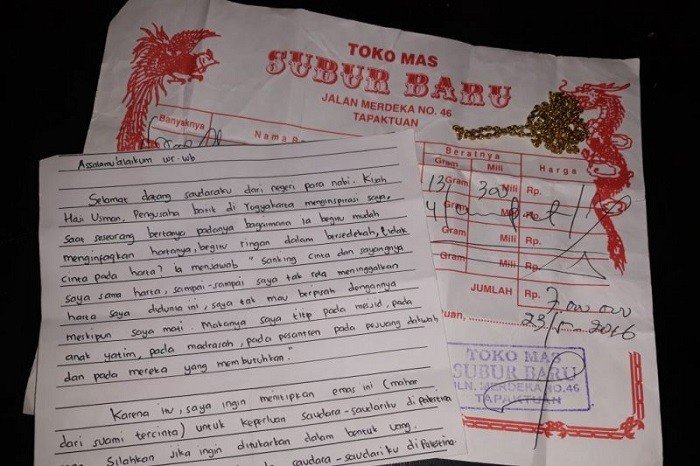 TOKO MAS
SUBUR BARU
JALAN MERDEKA NO. 46
TAPAKTUAN
Banyaknya
Nama B
Beratnya
Harga
Gram
Mili
13 Gram
300 Mili
Rp.
Gram
Mili
Rp.
Gram
Mili
Rp.
Gram
Mili
Rp.
JUMLAH
Rp.
7.000.000
tuan, 23/5-2016
TOKO MAS
SUBUR BARU
JLN. MERDEKA NO.46
TAPAKTUAN
Assalamu'alaikum wr-wb
Selamat datang saudaraku dari negeri para nabi. Kisah
Haji Usman, Pengusaha batik di Yogyakarta menginspirasi saya,
saat seseorang bertanya padanya bagaimana ia begitu mudah
menginfaqkan hartanya, begitu ringan dalam bersedekah, tidak
cinta pada harta? Ia menjawab "Sanking cinta dan sayangnya
saya sama harta, sampai-sampai saya tak rela meninggalkan
harta saya didunia ini, saya tak mau berpisah dengannya
meskipun saya mati. Makanya saya titip pada mesjid, pada
anak yatim, pada madrasah, pada pesantren pada pejuang dakwah
dan pada mereka yang membutuhkan."
Karena itu, saya ingin menitipkan emas ini (mahar
dari suami tercinta) untuk keperluan saudara-saudariku di Palestina
Silahkan jika ingin ditukarkan dalam bentuk uang.
saudara-saudariku di Palestina